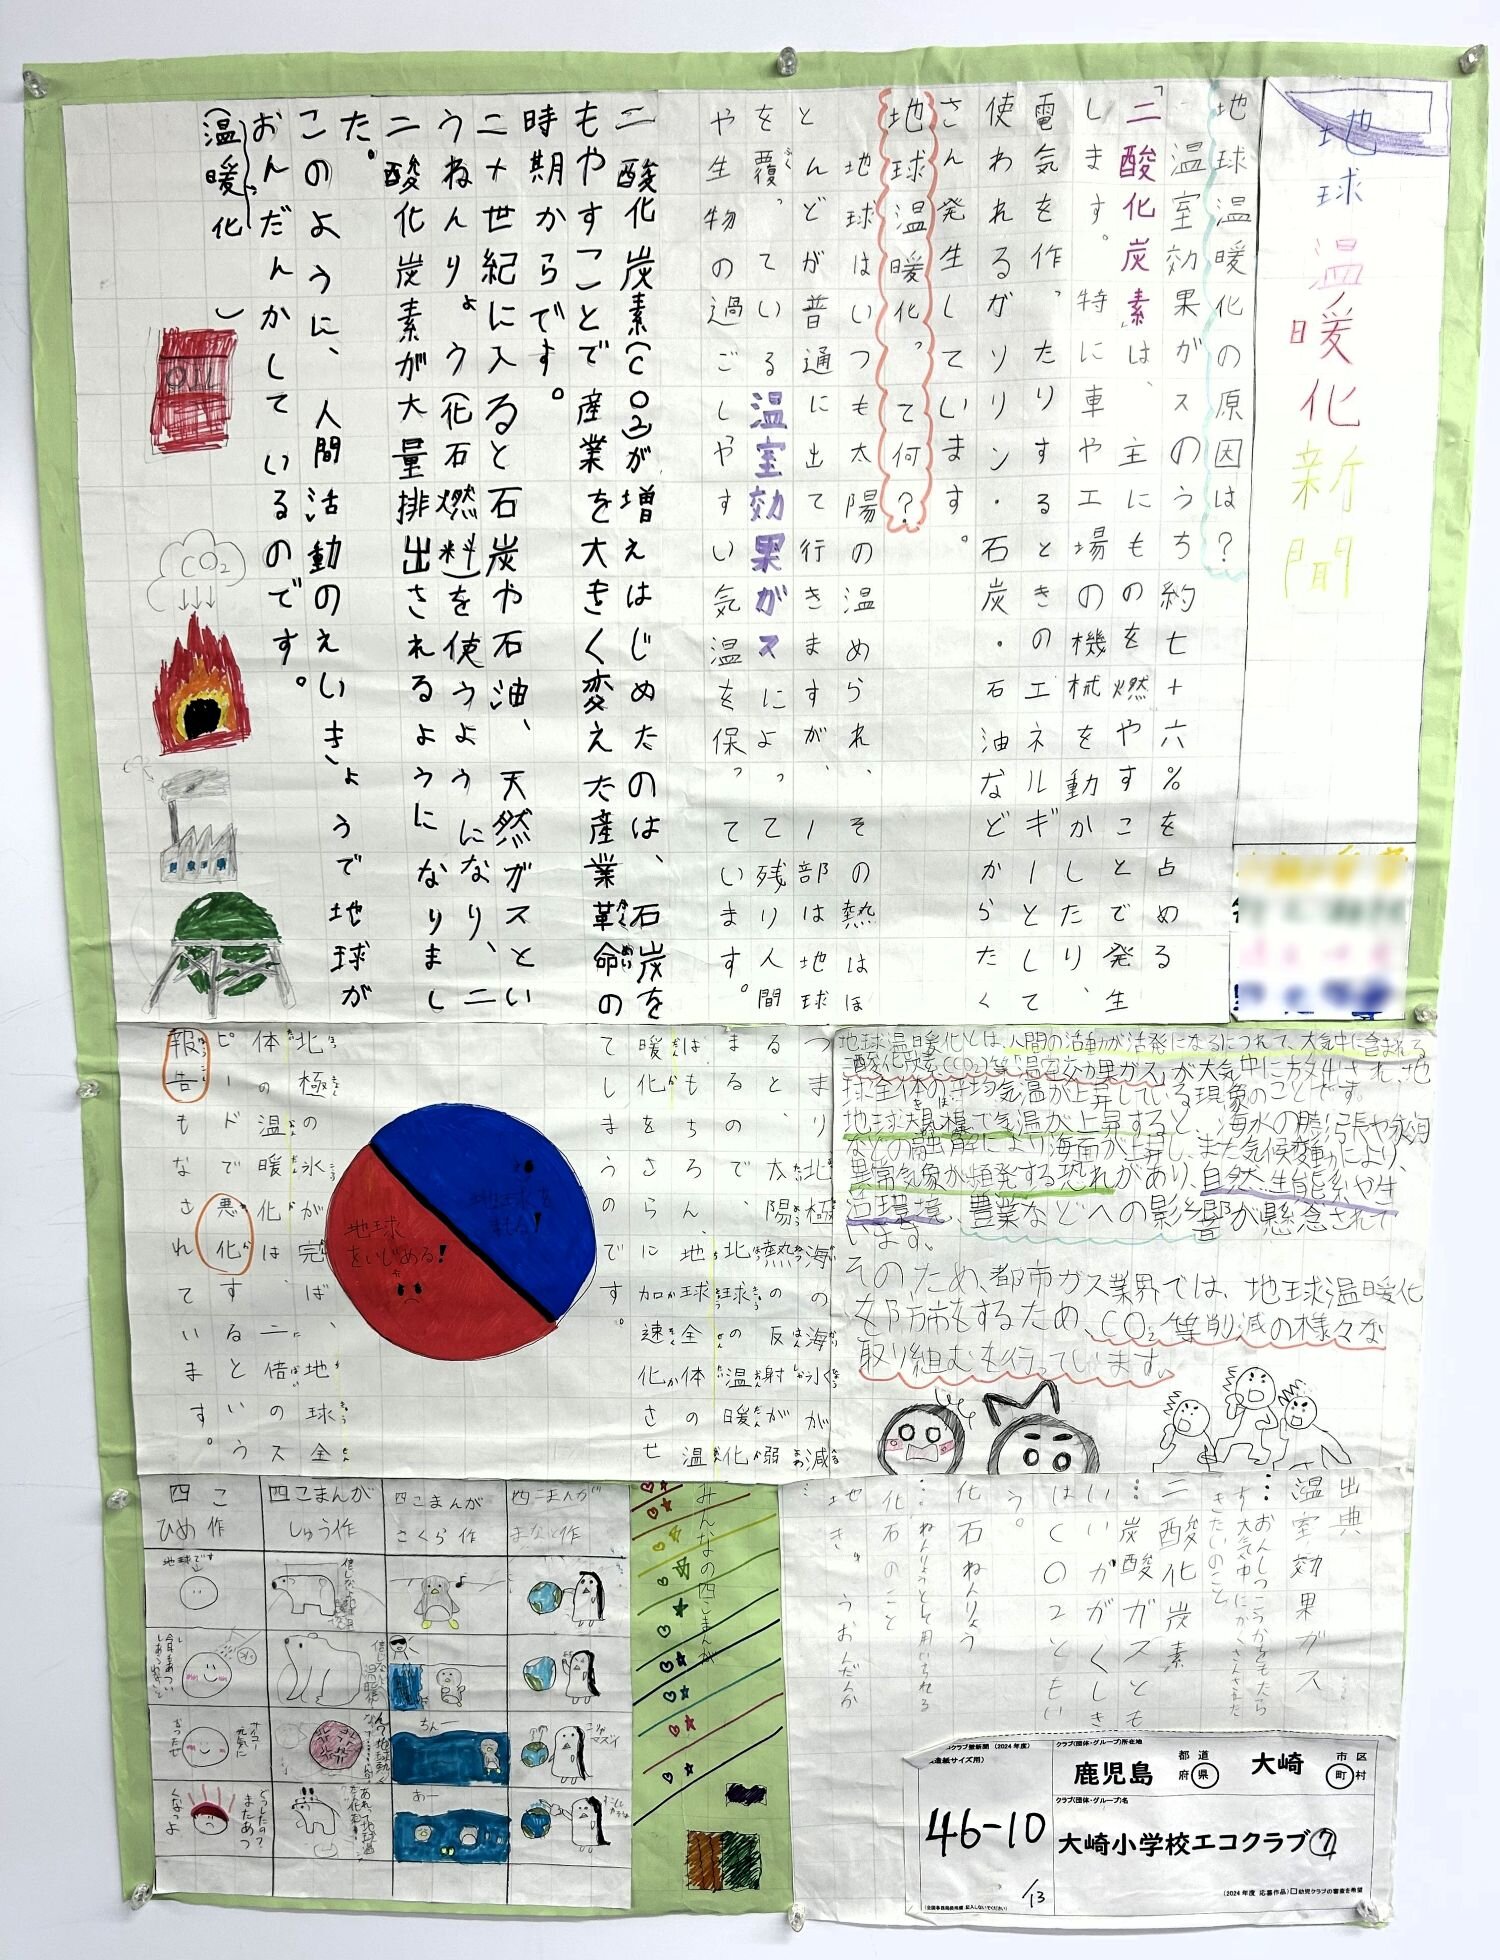 地球温暖化新聞
地球温暖化の原因は?
温室効果ガスのうち約七十六%を占める
「二酸化炭素」は、主にものを燃やすことで発生
します。特に車や工場の機械を動かしたり、
電気を作ったりするときのエネルギーとして
使われるガソリン・石炭・石油などからたく
さん発生しています。
地球温暖化って何?
地球はいつも太陽の温められ、その熱はほ
とんどが普通に出て行きますが、一部は地球
を覆っている温室効果ガスによって残り人間
や生物の過ごしやすい気温を保っています。
二酸化炭素(CO2)が増えはじめたのは、石炭を
もやすことで産業を大きく変えた産業革命の
時期からです。
二十世紀に入ると石炭や石油、天然ガスとい
うねんりょう(化石燃料)を使うようになり、二
二酸化炭素が大量排出されるようになりまし
た。
このように、人間活動のえいきょうで地球が
おんだんかしているのです。
(温暖化)
OIL
CO2
地球温暖化とは、人間の活動が活発になるにつれて、大気中に含まれる
二酸化炭素(CO2)等「温室効果ガス」が大気中に放出され、地
球全体の平均気温が上昇している現象のことです。
地球規模で気温が上昇すると、海水の膨張や氷河
などの融解により海面が上昇し、また気候変動により、
異常気象が頻発する恐れがあり、自然生態系や生
活環境、農業などへの影響が懸念されて
います。
そのため、都市ガス業界では、地球温暖化
を防市をするため、CO2等削減の様々な
取り組むを行っています。
つまり北極海の海氷が減
ると、太陽熱の反射が弱
まるので、北球の温暖化
はもちろん、地球全体の温
暖化をさらに加速化させ
てしまうのです。
地球
をいじめる!
北極の氷が完ば、地球全
体の温暖化は、二倍のス
ピードで悪化するという
報告もなされています。
出典
温室効果ガス
…おんしつこうかをもたら
す大気中にかくさんされ
きたいのこと
二酸化炭素
…炭酸ガスとも
いいががくしき
はCO2ともい
う。
化石ねんりょう
…ねんりょうとして用いられる
化石のこと
みんなの四こまんが
四こまんが
まなと作
四こまんが
さくら作
四こまんが
しゅう作
四こ
ひめ作
地球です
鹿児島
都道府県
大崎
市区町村
クラブ(団体・グループ)所在地
クラブ(団体・グループ)名
46-10
/13
大崎小学校エコクラブ⑦
(2024年度 応募作品)□幼児クラブの審査を希望